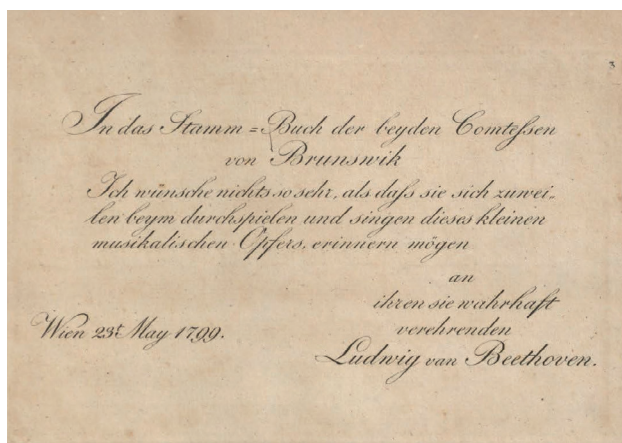 3
In das Stamm = Buch der beyden Comteſsen
von Brunswik
Ich wünsche nichts so sehr, als daſs sie sich zuwei„
len beym durchspielen und singen dieses kleinen
musikalischen Opfers, erinnern mögen
an
ihren sie wahrhaft
Wien 23t May 1799.
verehrenden
Ludwig van Beethoven.